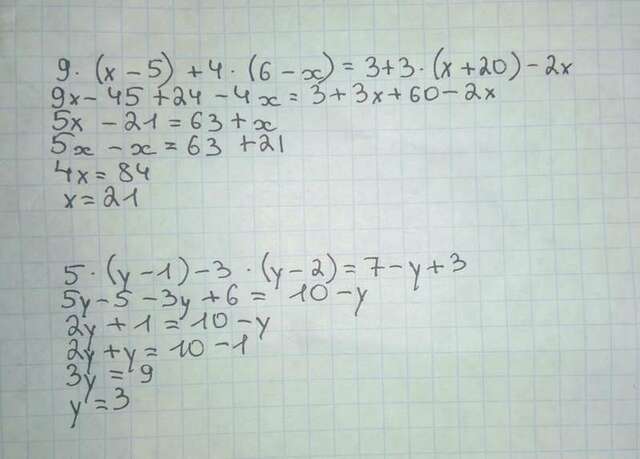 9 · (x - 5) + 4 · (6 - x) = 3 + 3 · (x + 20) - 2x
9x - 45 + 24 - 4x = 3 + 3x + 60 - 2x
5x - 21 = 63 + x
5x - x = 63 + 21
4x = 84
x = 21
5 · (y - 1) - 3 · (y - 2) = 7 - y + 3
5y - 5 - 3y + 6 = 10 - y
2y + 1 = 10 - y
2y + y = 10 - 1
3y = 9
y = 3